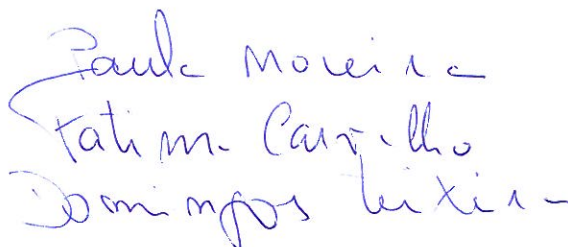 Paula Moreira
Fatima Carvalho
Domingos Teixeira